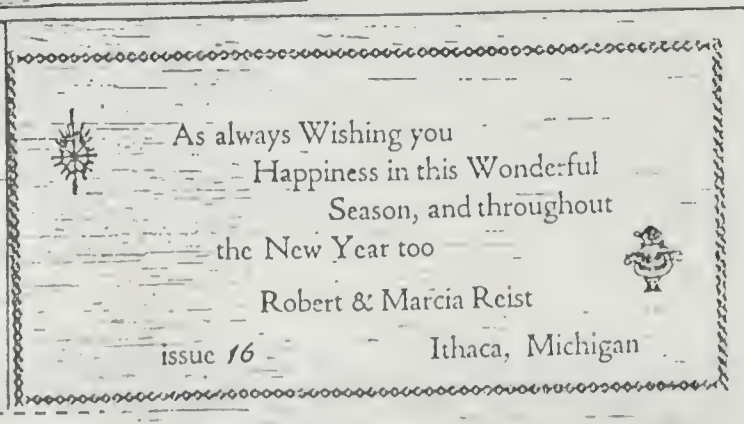 As always Wishing you
Happiness in this Wonderful
Season, and throughout
the New Year too
Robert & Marcia Reist
issue 16
Ithaca, Michigan